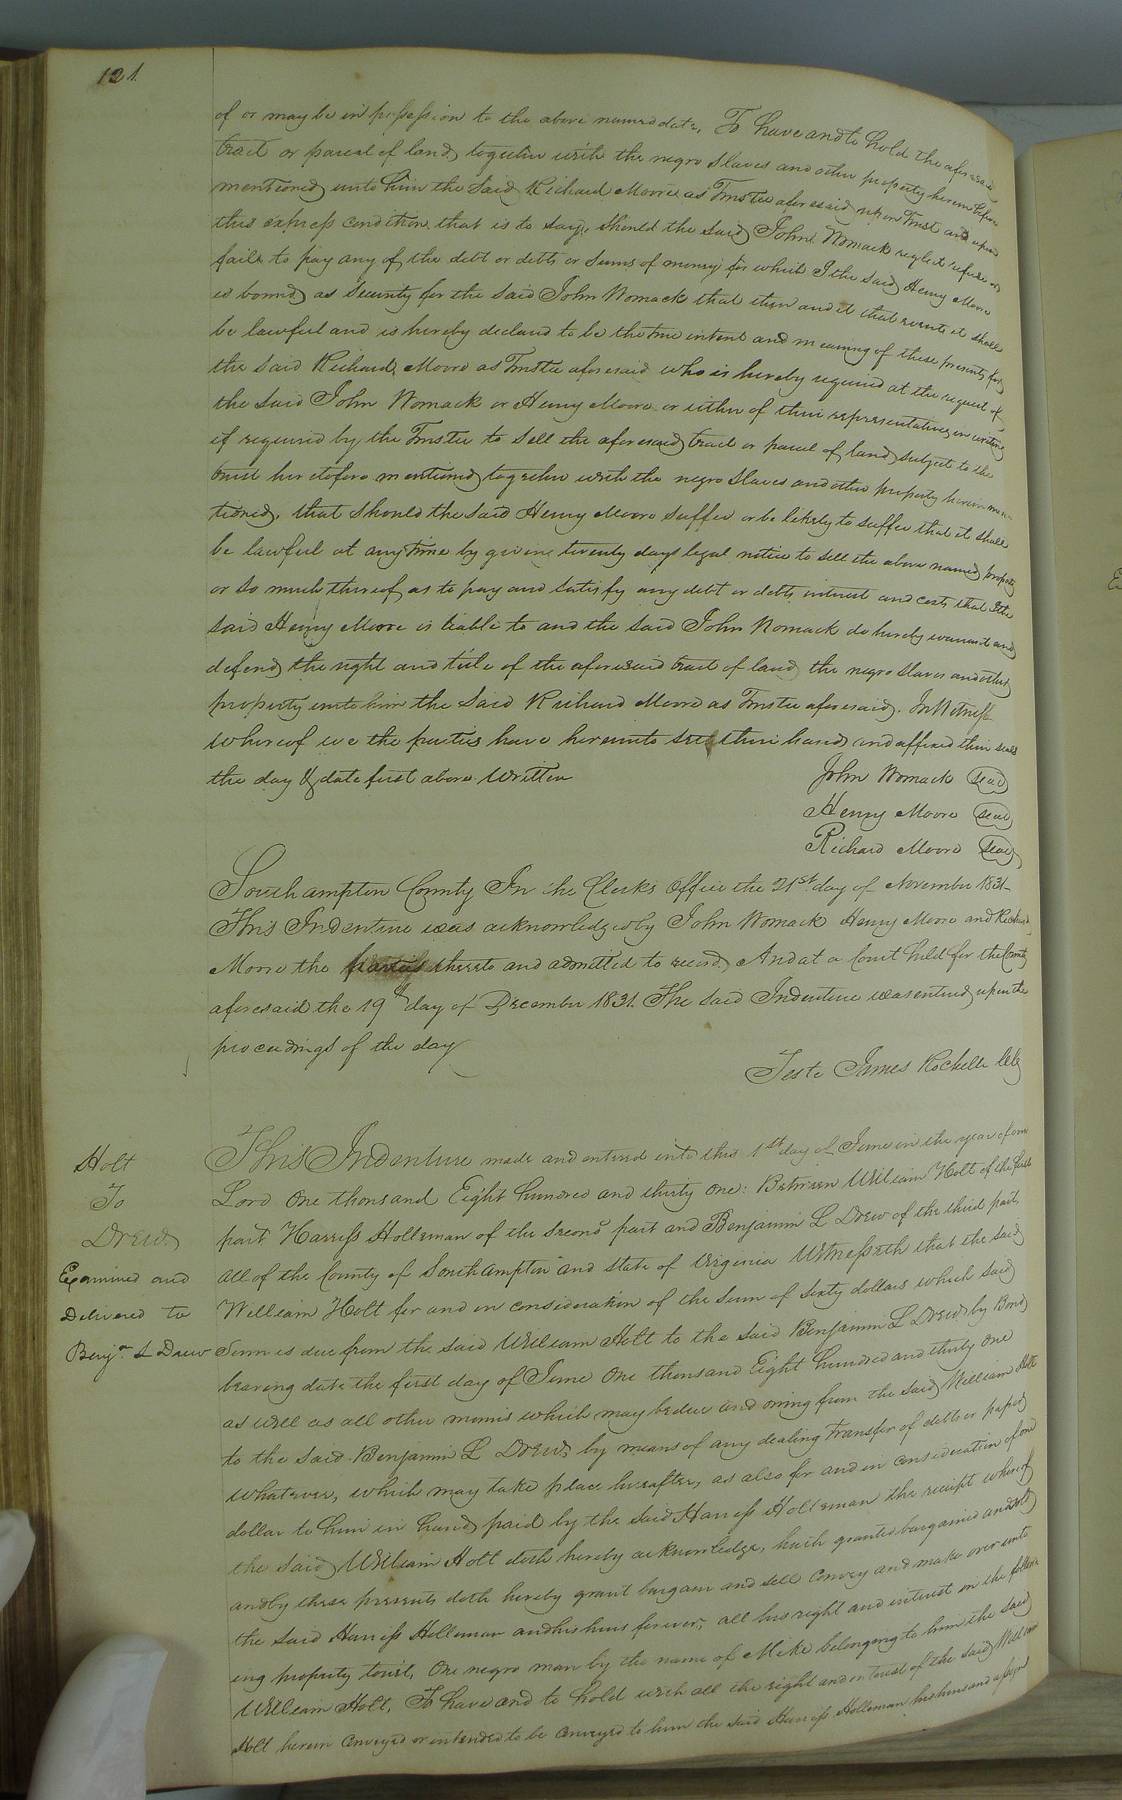 121.
of or may be in possession to the above named date, To have and to hold the aforesaid
tract or parcel of land, together with the negro Slaves and other property herein before
mentioned, unto him the Said Richard Moore as Trustee aforesaid upon Trust and upon
this express condition that is to say, Should the Said John Womack neglect refuse or
faile to pay any of the debt or debts or Sums of money for which I the said Henry Moore
is bound, as Security for the Said John Womack that then and at that event it shall
be lawful and is hereby declared to be the true intent and meaning of these presents for
the Said Richard Moore as Trustee aforesaid who is hereby required at the request of
the Said John Womack or Henry Moore or either of their representatives in writing
if required by, the Trustee to Sell the aforesaid, tract or parcel of land, subject to the
trust heretofore mentioned, together with the negro Slaves and other property herein men-
tioned, that Should the Said Henry Moore Suffer or be likely to suffer that it shall
be lawful at any time by giving twenty days legal notice to sell the above named property
or so much thereof as to pay and satisfy any debt or debts interest and costs that I the
Said Henry Moore is liable to and the Said John Womack do hereby warrant and
defend, the right and title of the aforesaid tract of land, the negro Slaves and other
property unto him the Said Richard Moore as Trustee aforesaid. In Witness
whereof we the parties have hereunto set their hands and affixed their seals
the day & date first above Written
John Womack Seal
Henry Moore Seal
Richard Moore Seal
Southampton County In the Clerks Office the 21st day of November 1831
This Indenture was acknowledged by John Womack Henry Moore and Richard
Moore the parties thereto and admitted to record, And at a Court held for the County
aforesaid the 19th day of December 1831. The Said Indenture was entered upon the
proceedings of the day
Teste James Rochelle Clk
Holt
To
Drew
Examined and
Delivered to
Benjn. L Drew
This Indenture made and entered into this 1st day of June in the year of our
Lord One thousand Eight hundred and thirty one: Between William Holt of the first
part Harriss Holleman of the Second part and Benjamin L Drew of the third part,
all of the County of Southampton and State of Virginia Witnesseth that the said
William Holt for and in consideration of the Sum of Sixty dollars which said
Sum is due from the said William Holt to the Said Benjamin L Drew, by Bond
bearing date the first day of June One thousand Eight hundred and thirty one
as well as all other monies which may be due and owing from the Said William Holt
to the Said Benjamin L Drew, by means of any dealing transfer of debts or papers
whatever, which may take place hereafter, as also for and in consideration of one
dollar to him in hand paid by the Said Harriss Holleman the receipt whereof
the said William Holt doth hereby acknowledge, hath granted bargained and sold
and by these presents doth hereby grant bargain and sell Convey and make over unto
the said Harriss Holleman and his heirs forever, all his right and interest in the follow-
ing property towit, One negro man by the name of Meke belonging to him the said
William Holt, To have and to hold with all the right and interest of the said William
Holt herein Conveyed or intended to be Conveyed to him the Said Harriss Holleman his heirs and assigns